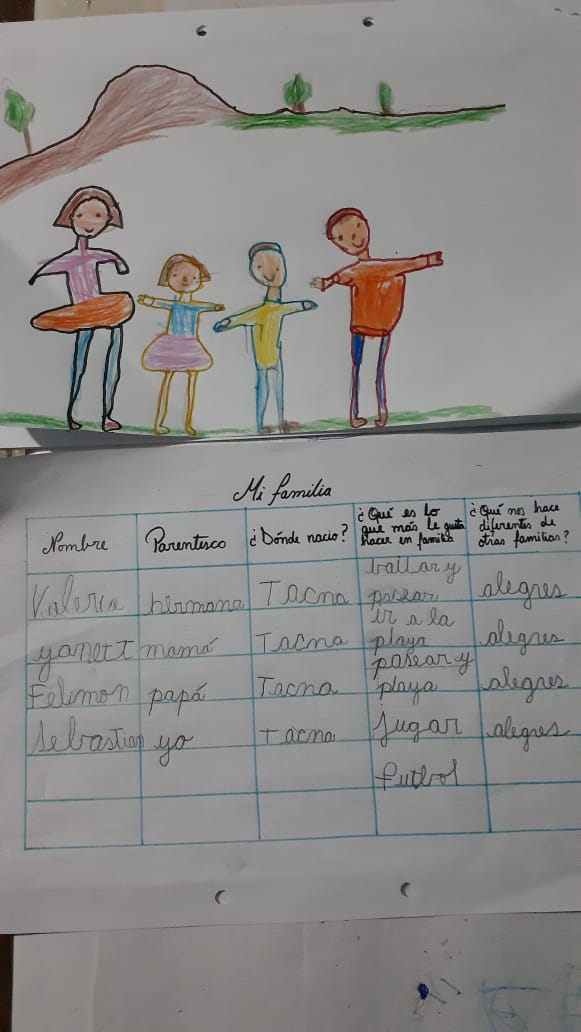 Mi familia
Nombre Parentesco ¿Dónde nacio? ¿Qué es lo que más le gusta hacer en familia ¿Qué nos hace diferentes de otras familias?
Valeria hermana Tacna bailar y pasear alegres
yanett mamá Tacna ir a la playa alegres
Felimon papá Tacna pasear y playa alegres
Sebastian yo tacna jugar futbol alegres